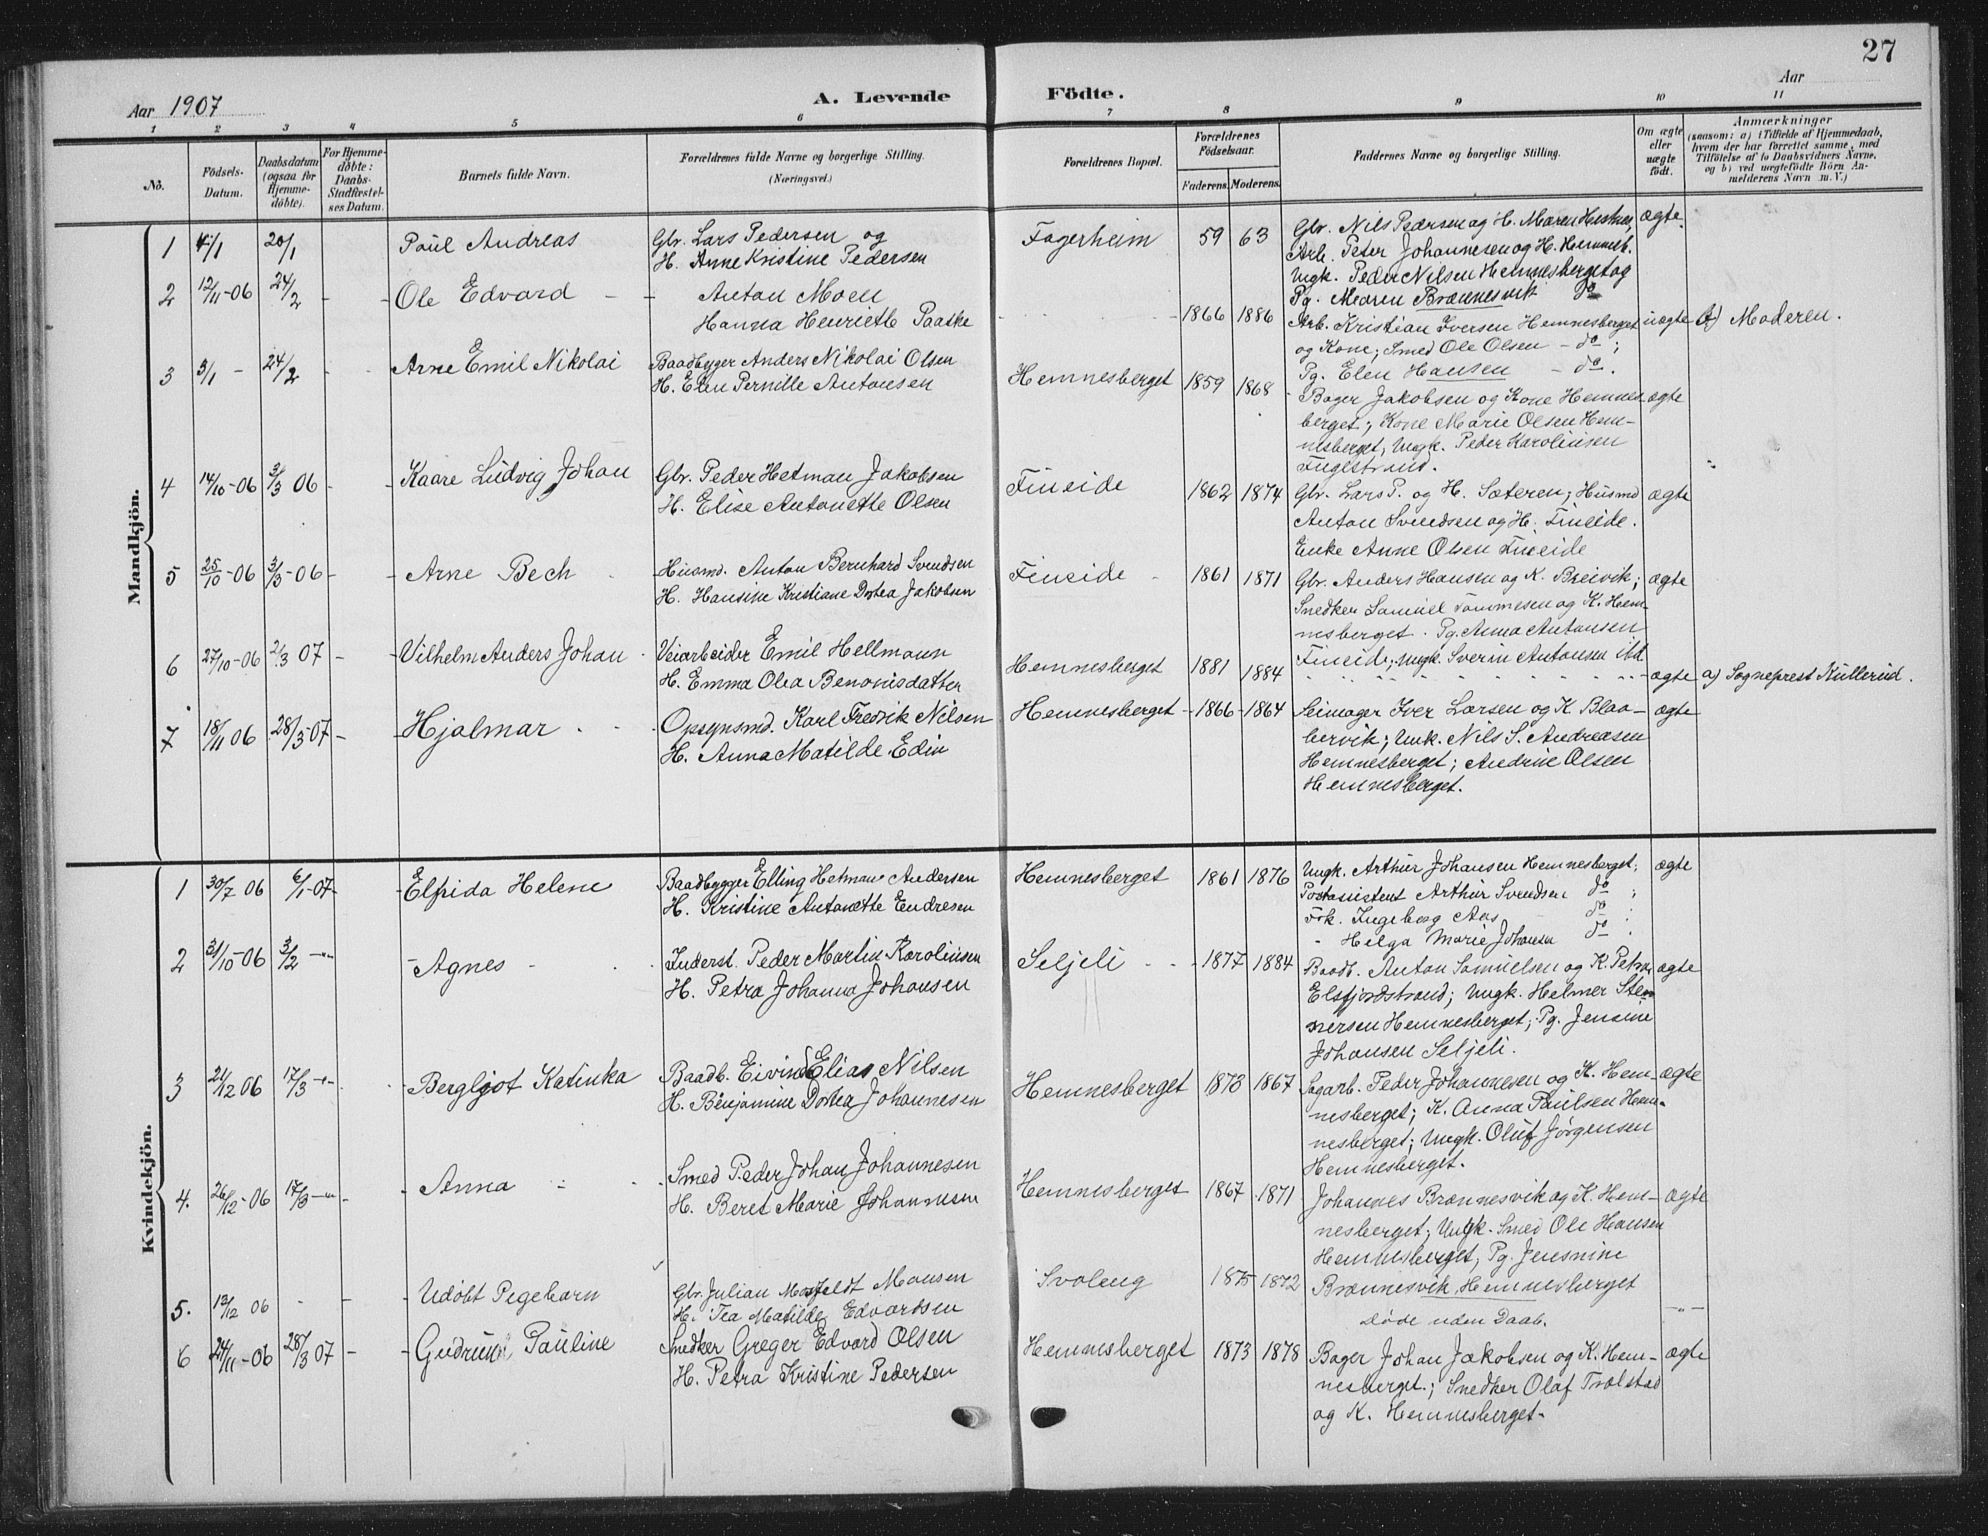 27
Aar 1907
A. Levende Födte.
Aar
1 2 3 4 5 6 7 8 9 10 11
No.
Födsels-Datum.
Daabsdatum (ogsaa for Hjemme-döbte).
For Hjemme-döbte: Daabs-Stadfæstel-ses Datum.
Barnets fulde Navn.
Forældrenes fulde Navne og borgerlige Stilling. (Næringsvei.)
Forældrenes Bopæl.
Forældrenes Födselsaar.
Faderens. Moderens.
Faddernes Navne og borgerlige Stilling.
Om ægte eller uægte födt.
Anmærkninger
(saasom: a) i Tilfælde af Hjemmedaab,
hvem der har forrettet samme, med
Tilföielse af to Daabsvidners Navne,
og b) ved uægtefödte Börn An-
melderens Navn m. V.)
Mandkjön.
1 /1 20/1 Paul Andreas
Gbr. Lars Pedersen og
H. Anne Kristine Pedersen
Fagerheim 59 63
Gbr. Nils Pedersen og H. Maren ægte.
Arb. Peter Johannesen og H. Hemnesb.
Ungk. Peder Nilsen Hemnesberget og
Pg. Maren Brennesvik do
2 12/11-06 24/2 - - Ole Edvard - -
Anton Moen
Hanna Henriette Paaske
1866 1886
Arb. Kristian Iversen Hemnesberget uægte b) Moderen.
og Kone; Smed Ole Olsen - do;
Pg. Elen Hansen - do.
3 3/1 - 24/2 Arne Emil Nikolai
Baadbygger Anders Nikolai Olsen
H. Elen Pernille Antonsen
Hemnesberget 1859 1868
Bager Jakobsen og Kone Hemnes- ægte
berget; Kone Marie Olsen Hem-
nesberget; Ungk. Peder Karolinsen
Fuglstrand.
4 14/10-06 3/3 06 - - Kaare Ludvig Johan
Gbr. Peder Hetman Jakobsen
H. Elise Antonette Olsen
Fineide 1862 1874
Gbr. Lars P. og H. Sæteren; Husmd ægte
Anton Svendsen og H. Fineide.
Enke Anne Olsen Fineide
5 25/10-06 3/3-06 - - Arne Bech
Husmd. Anton Bernhard Svendsen
H. Hansine Kristiane Dortea Jakobsen
Fineide - 1861 1871
Gbr. Anders Hansen og K. Breivik; ægte
Snedker Samuel Tommesen og K. Hem-
nesberget. Pg. Anna Antonsen
Fineide; Ungk. Sverin Antonsen ibd
6 27/10-06 2/3 07 - - Vilhelm Anders Johan
Veiarbeider Emil Hellmann
H. Emma Olea Benonisdatter
Hemnesberget 1881 1884 ægte a) Sogneprest Kullerud.
7 18/11 06 28/3-07 - - Hjalmar
Opsynsmd. Karl Fredrik Nilsen
H. Anna Matilde Edin
Hemnesberget - 1866 - 1864
Leimager Iver Larsen og K Blaa- ægte
bervik; Ungk. Nils S. Andreasen
Hemnesberget; Andrine Olsen
Hemnesberget.
Kvindekjön.
1 30/7 06 6/1-07 - Elfrida Helene
Baadbygger Elling Hetman Andersen
H. Kristine Antonette Endresen
Hemnesberget 1861 1876
Ungk. Arthur Johansen Hemnesberget; ægte
Postassistent Arthur Svendsen do ;
Frk. Ingeborg Aas do ;
- Helga Marie Johansen do .
2 31/10-06 3/2 -"- - Agnes -
Inderst. Peder Martin Karolinsen
H. Petra Johanna Johansen
Seljeli - - 1877 1884
Baadb. Anton Samuelsen og K. Petra ægte
Elsfjordstrand; Ungk. Helmer Sten-
nersen Hemnesberget; Pg. Jensine
Johansen Seljeli.
3 21/12 06 17/3 -"- Bergljot Katinka
Baadb. Eivind Elias Nilsen
H. Benjamine Dortea Johannesen
Hemnesberget 1873 1867
Sagarb. Peder Johannesen og K. Hem- ægte
nesberget; K. Anna Paulsen Hem-
nesberget; Ungk. Oluf Jørgensen
Hemnesberget.
4. 26/12-06 17/3 -"- - - Anna
Smed Peder Johan Johannesen
H. Beret Marie Johannesen
Hemnesberget 1867 1871
Johannes Brennesvik og K. Hem- ægte
nesberget; Ungk. Smed Ole Hansen
Hemnesberget; Pg. Jensnine
Brennesvik, Hemnesberget
5. 13/12 06 - - - Udöbt Pigebarn
Gbr. Julian Mosfeldt Monsen
H. Tea Matilde Edvardsen
Svaleng 1875 1872
døde uden Daab. -"-
6 24/11-06 28/3 07 - - Gudrun Pauline
Snedker Greger Edvard Olsen
H. Petra Kristine Pedersen
Hemnesberget 1873 1878
Bager Johan Jakobsen og K. Hem- ægte
nesberget; Snedker Olaf Trælstad
og K. Hemnesberget.